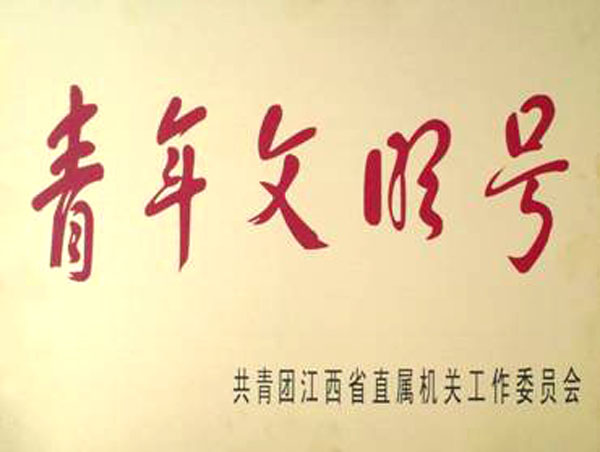 青年文明号
共青团江西省直属机关工作委员会